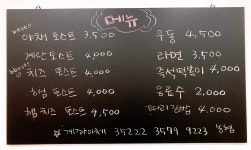 메뉴
야채 토스트 3,500
계란 토스트 4,000
치즈 토스트 4,000
햄 토스트 4,000
햄 치즈 토스트 4,500
우동 4,500
라면 3,500
즉석떡볶이 4,000
음료수 2,000
꼬마김밥 4,000
계좌이체 35222 3579 9223 농협